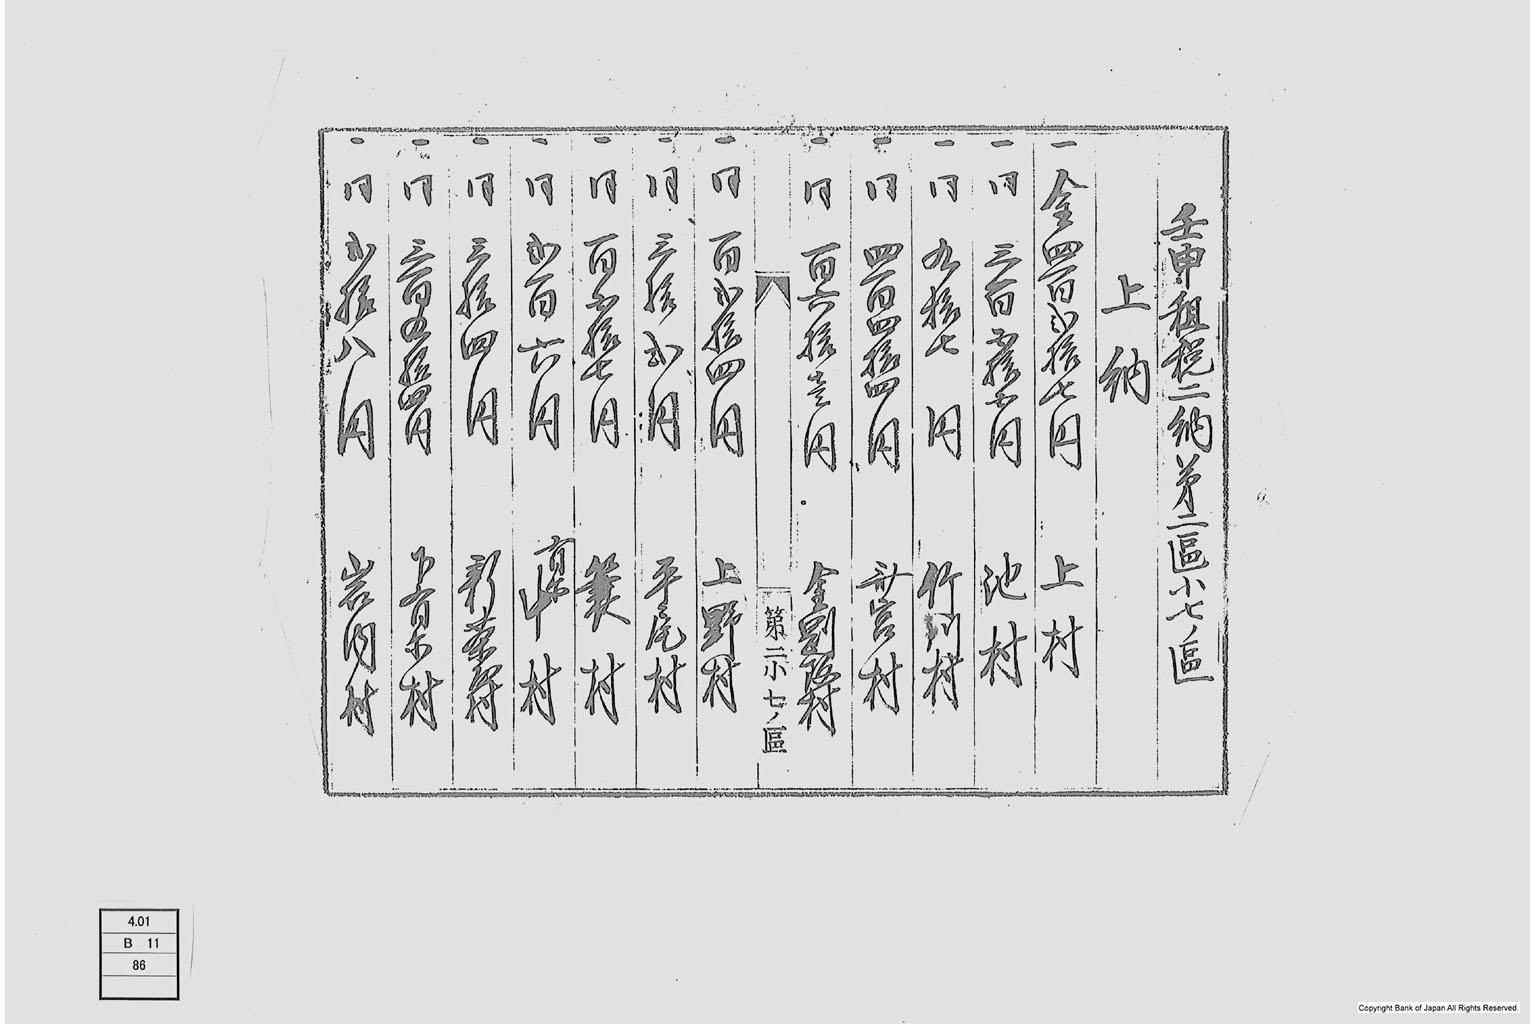 壬申租税二納第二區小七ノ區
上納
一 金四百弐拾七円 上村
一 同 三百五拾七円 池村
一 同 九拾七円 竹川村
一 同 四百四拾四円 斎宮村
一 同 百六拾壱円 金剛坂村
第二小七ノ區
一 同 百弐拾四円 上野村
一 同 三拾弐円 平尾村
一 同 百五拾七円 簑村
一 同 弐百六円 中村
一 同 三拾四円 新茶屋村
一 同 三百五拾四円 下有尓村
一 同 弐拾八円 岩内村
4.01
B 11
86
Copyright Bank of Japan All Rights Reserved.